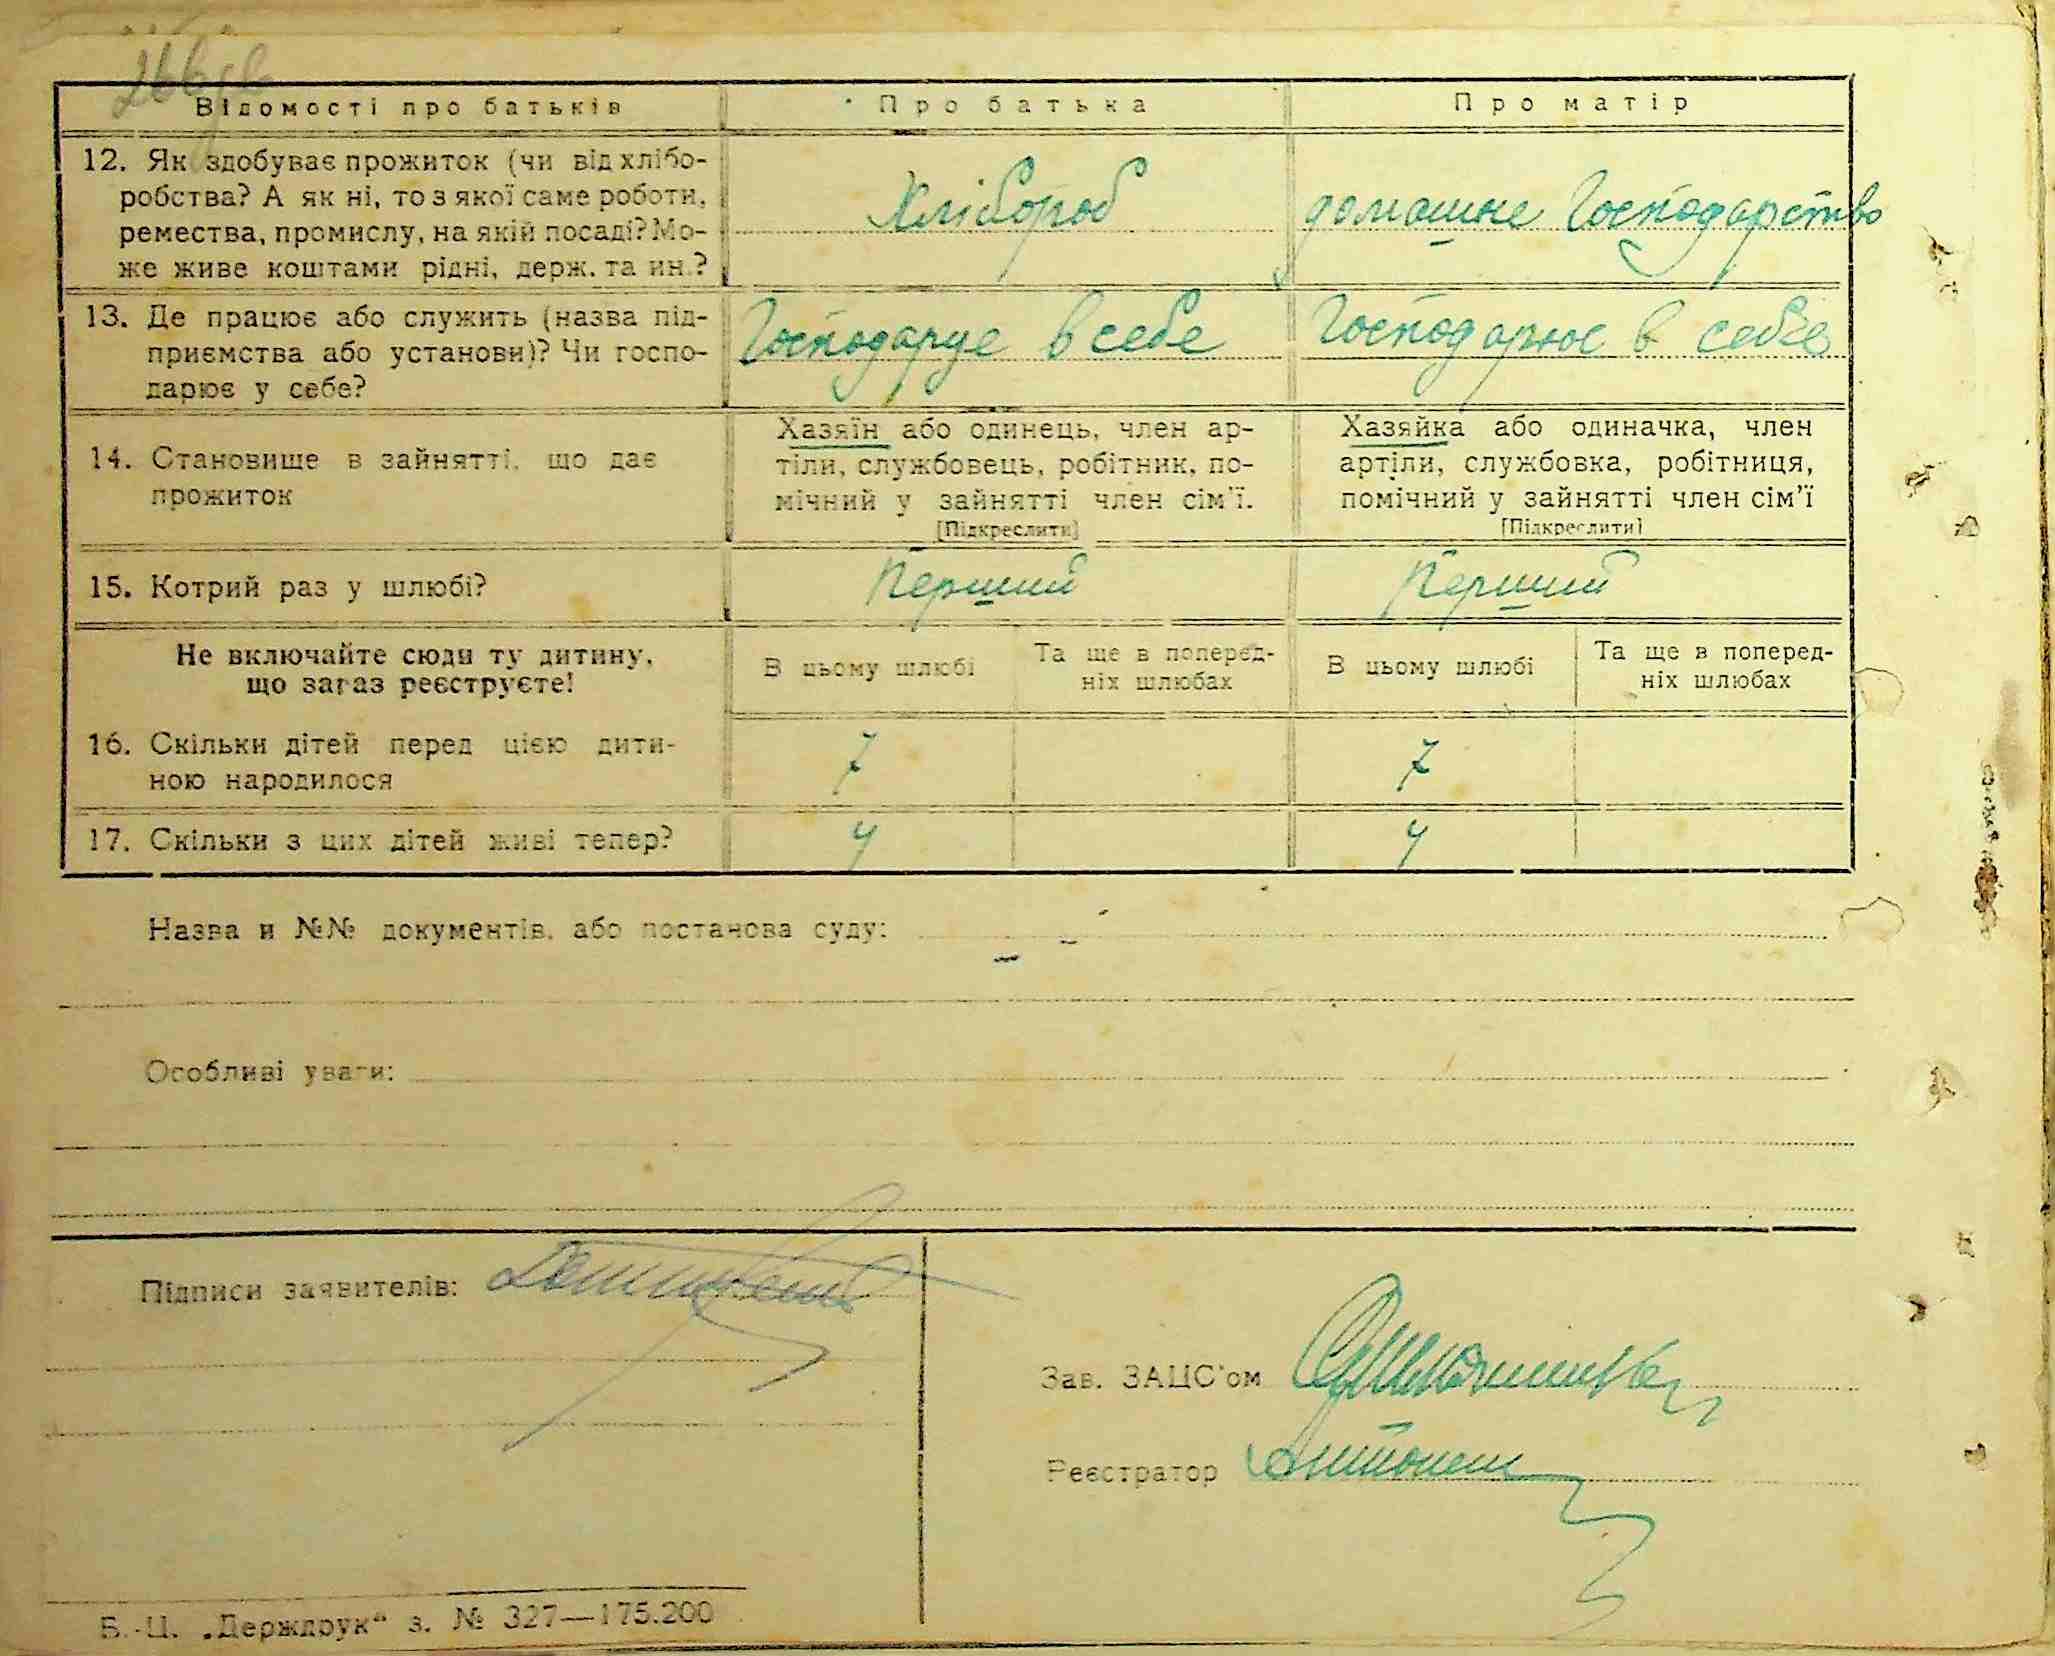 Відомості про батьків
Про батька
Про матір
12. Як здобуває прожиток (чи від хлібо-
робства? А як ні, то з якої саме роботи,
ремества, промислу, на якій посаді? Мо-
же живе коштами рідні, держ. та ин.?
Хлібороб
домашне Господарство
13. Де працює або служить (назва під-
приємства або установи)? Чи госпо-
дарює у себе?
Господарує в себе
Господарює в себе
14. Становище в зайнятті, що дає
прожиток
Хазяїн або одинець, член ар-
тіли, службовець, робітник, по-
мічний у зайнятті член сім'ї.
[Підкреслити]
Хазяйка або одиначка, член
артіли, службовка, робітниця,
помічний у зайнятті член сім'ї
[Підкреслити]
15. Котрий раз у шлюбі?
Перший
Перший
Не включайте сюди ту дитину,
що загаз реєструєте!
В цьому шлюбі
Та ще в поперед-
ніх шлюбах
В цьому шлюбі
Та ще в поперед-
ніх шлюбах
16. Скільки дітей перед цією дити-
ною народилося
7
7
17. Скільки з цих дітей живі тепер?
4
4
Назва и №№ документів, або постанова суду:
Особливі уваги:
Підписи заявителів:
Зав. ЗАЦС'ом
Реєстратор
Б.-Ц. „Держдрук“ з. № 327—175.200